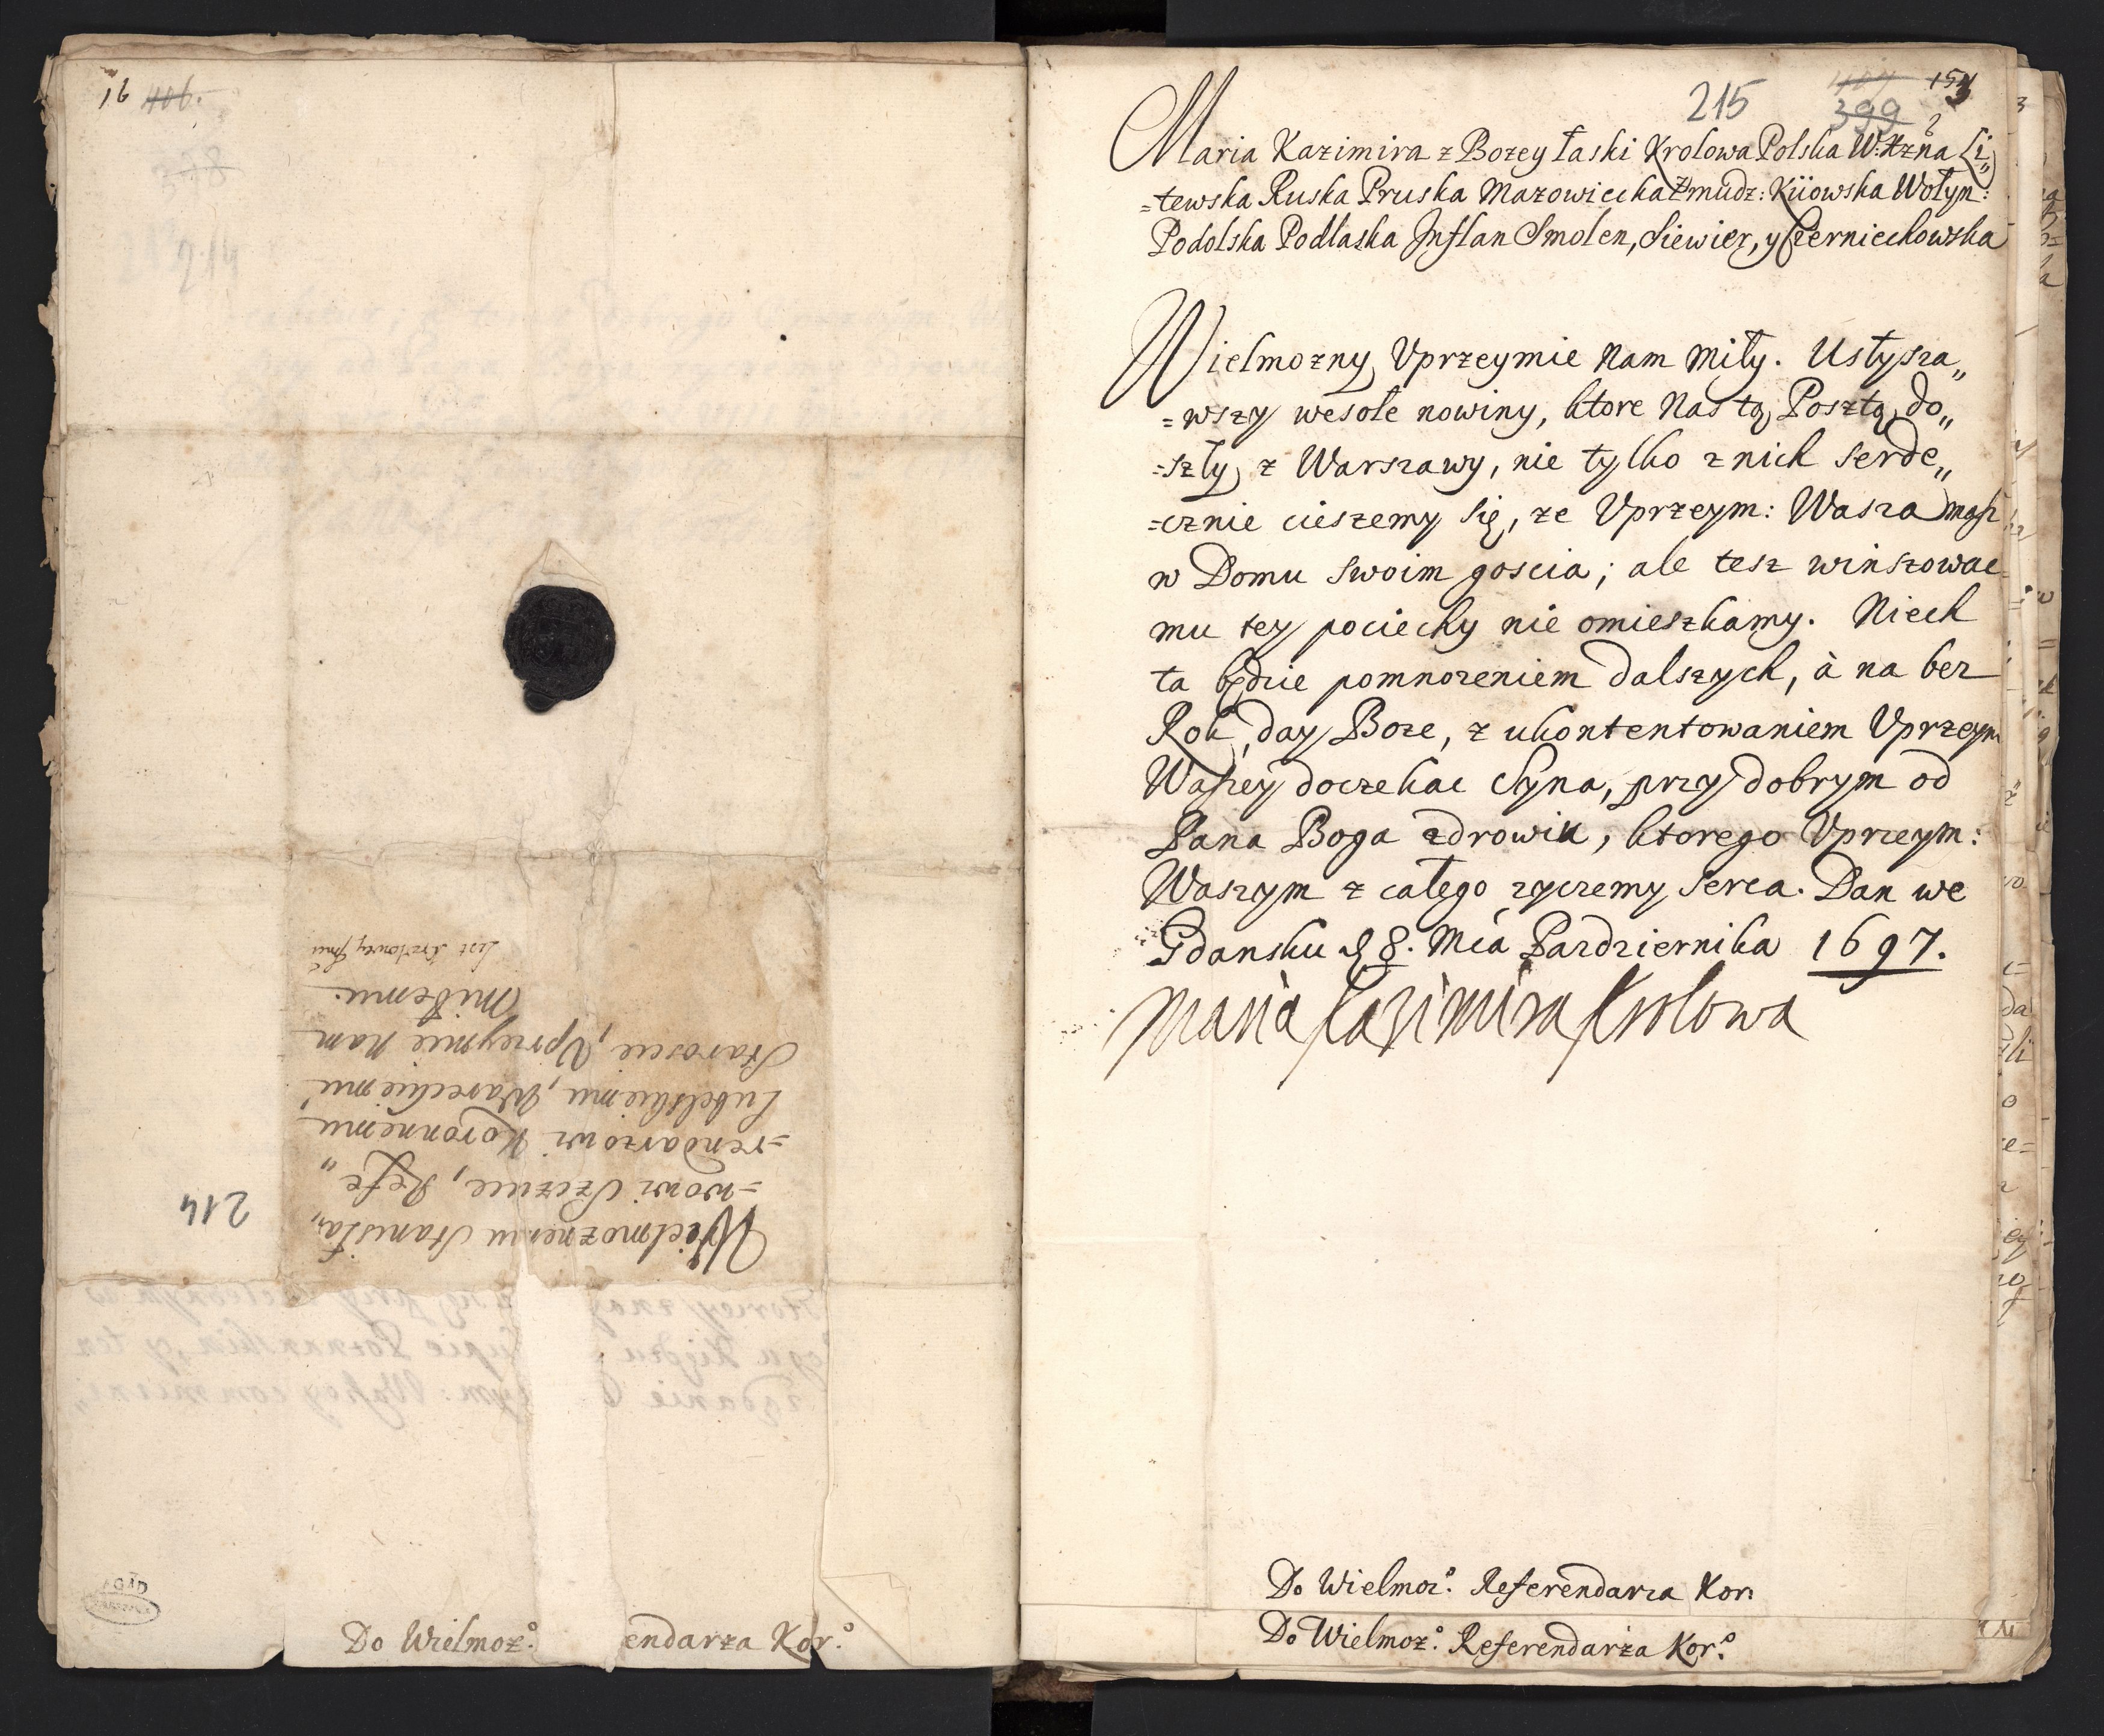 16 406.
378
214
Wielmoznemu Stanisła„
=wowi Szczuce, Refe„
=rendarzowi Koronnemu
Lubelskiemu, Wareckiemu
Staroscie, Uprzeymie Nam
Miłemu.
List Krolowey Jmci
214
AGAD
WARSZAWA
Do Wielmoż.o endarza Kor.o
215 399 153
Maria Kazimira z Bozey łaski Krolowa Polska W: Xzna Li„
=tewska Ruska Pruska Mazowiecka Zmudz: Kiiowska Wołyn:
Podolska Podlaska Inflan Smolen, Siewier, y Czerniechowska
Wielmozny, Uprzeymie Nam Miły. Usłysza„
=wszy wesołe nowiny, ktore Nas tą Posztą do„
=szły z Warszawy, nie tylko z nich serde„
=cznie cieszemy się, ze Uprzeym: Wasza masz
w Domu swoim goscia; ale tesz winszowac
mu tey pociechy nie omieszkamy. Niech
ta będzie pomnozeniem dalszych, à na bez
Rok, day Boze, z ukontentowaniem Uprzeym
Waszey doczekac Syna, przy dobrym od
Pana Boga zdrowiu, ktorego Uprzeym:
Waszym z całego zyczemy Serca. Dan we
Gdansku D 8. Mca Pazdziernika 1697.
Maria Kazimira Krolowa
Do Wielmoz.o Referendarza Kor:
Do Wielmoż.o Referendarża Kor.o